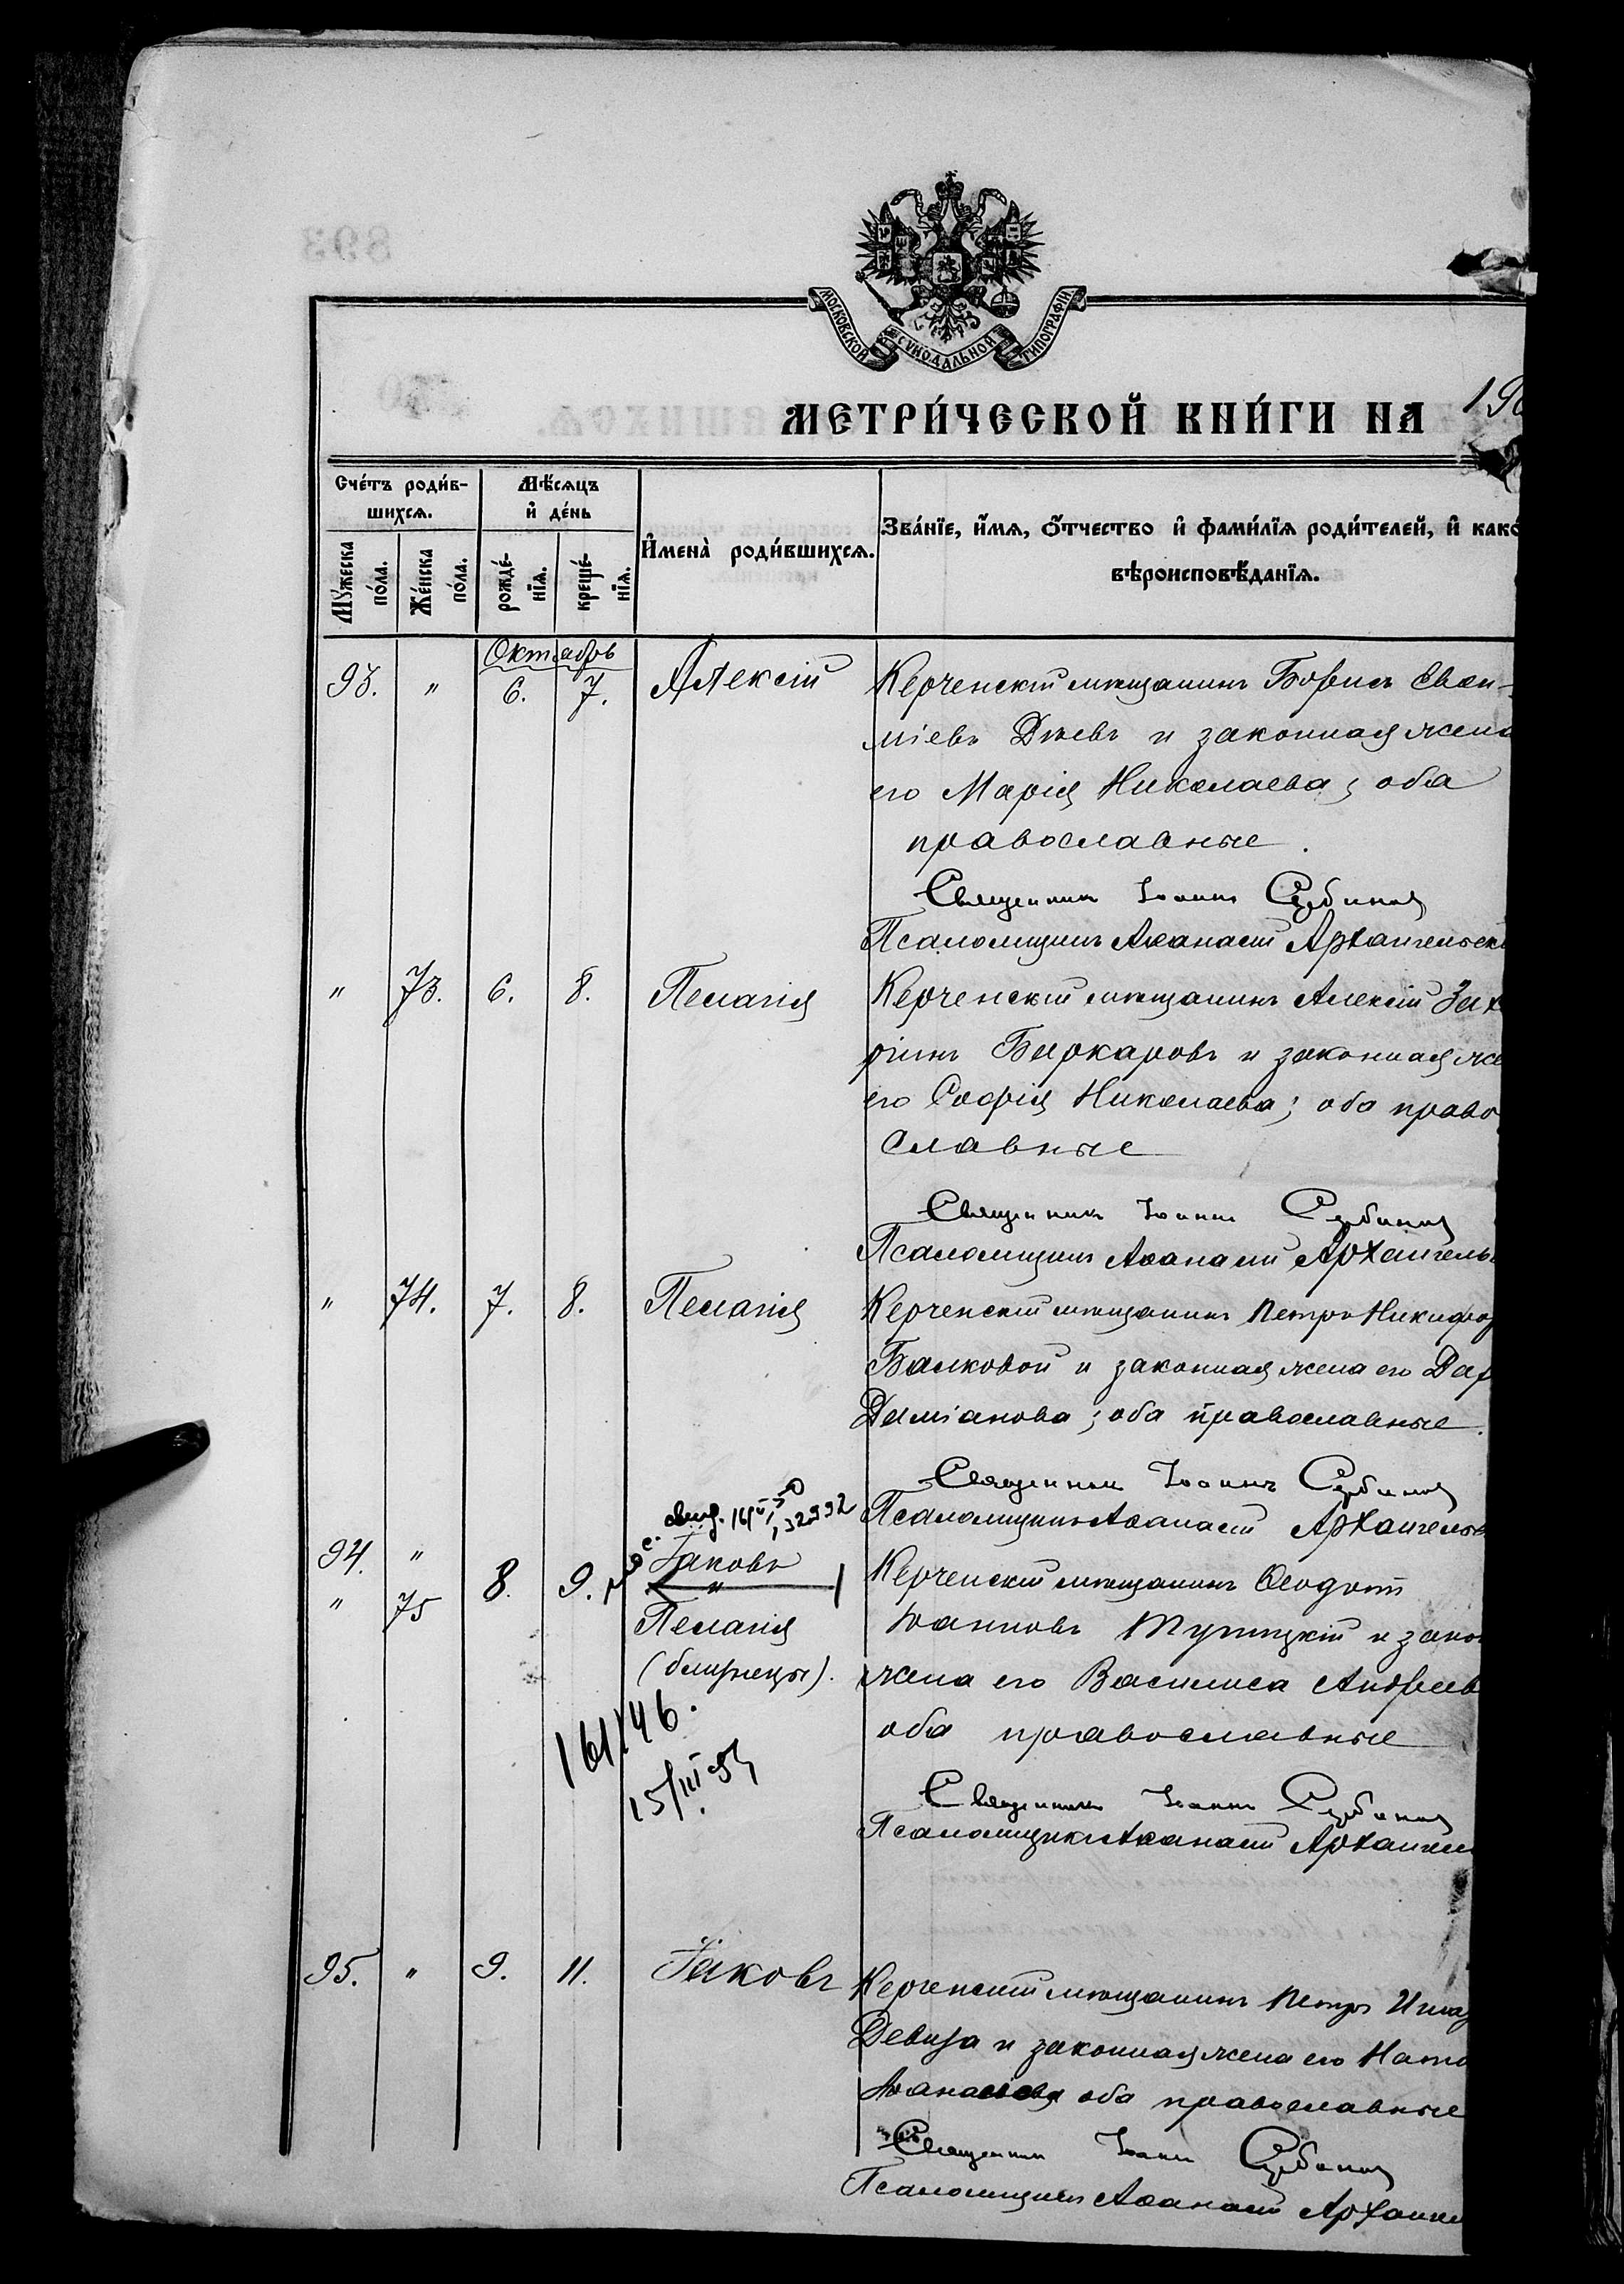 МОСКОВСКОЙ СѴНОДАЛЬНОЙ ТИПОГРАФІИ
МЕТРИ́ЧЕСКОЙ КНИ́ГИ НА
Сче́тъ роди́в-
шихсѧ.
Мꙋ́жеска по́ла.
Же́нска по́ла.
Мѣ́сѧцъ
и҆ де́нь
рожде́-
нїѧ.
креще́-
нїѧ.
И҆мена̀ роди́вшихсѧ.
Зва́нїе, и҆́мѧ, ѻ҆́тчество и҆ фами́лїѧ роди́телей, и҆ како́
вѣроисповѣ́данїѧ.
Октябрь
93. " 6. 7. Алексій Керченскій мѣщанинъ Борисъ Евѳи-
міевъ и законная жена
его Марія Николаева; оба
православные.
Священникъ Іоаннъ
Псаломщикъ Аѳанасій Архангельск
" 73. 6. 8. Пелагія Керченскій мѣщанинъ Алексій Зах
ріинъ Биркаровъ и законная же
его Софія Николаева; оба право
славные
Священникъ Іоаннъ
Псаломщикъ Аѳанасій Архангель
" 74. 7. 8. Пелагія Керченскій мѣщанинъ Петръ Никифор
Балковой и законная жена его Дар
Даміанова; оба православные.
Священникъ Іоаннъ
Псаломщикъ Аѳанасій Архангельс
94. " 8. 9. Іаковъ Керченскій мѣщанинъ Ѳеодотъ
" 75 "
Пелагія Іоанновъ и закон
(близнецы). жена его Василиса Андреев
161/46. оба православные
15/III
Священникъ Іоаннъ
Псаломщикъ Аѳанасій Архангел
95. " 9. 11. Іаковъ Керченскій мѣщанинъ Петръ
Девиза и законная жена его Ната
Аѳанасіева оба православные
Священникъ Іоаннъ
Псаломщикъ Аѳанасій Архангел